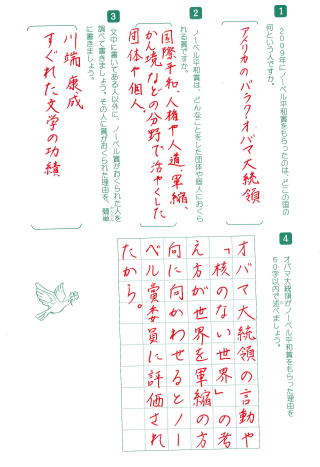 1
2009年にノーベル平和賞をもらったのは、どこの国の
何という人ですか。
アメリカのバラク・オバマ大統領
2
ノーベル平和賞は、どんなことをした団体や個人におくら
れる賞ですか。
国際平和、人権や人道、軍縮、
かん境などの分野で活やくした
団体や個人。
3
文中に書いてある人以外に、ノーベル賞がおくられた人を
調べて書きましょう。その人に賞がおくられた理由を、簡単
に書きましょう。
川端康成
すぐれた文学の功績
4
オバマ大統領がノーベル平和賞をもらった理由を
60字以内で述べましょう。
オバマ大統領の言動や
「核のない世界」の考
え方が世界を軍縮の方
向に向かわせるとノー
ベル賞委員に評価され
たから。